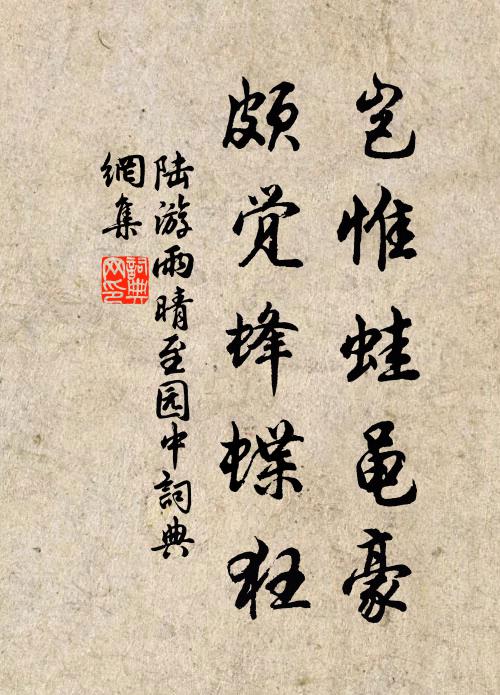 岂惟蛙黾豪
颇觉蜂蝶狂
陆游雨晴至园中詞典
網集
詞典
网印